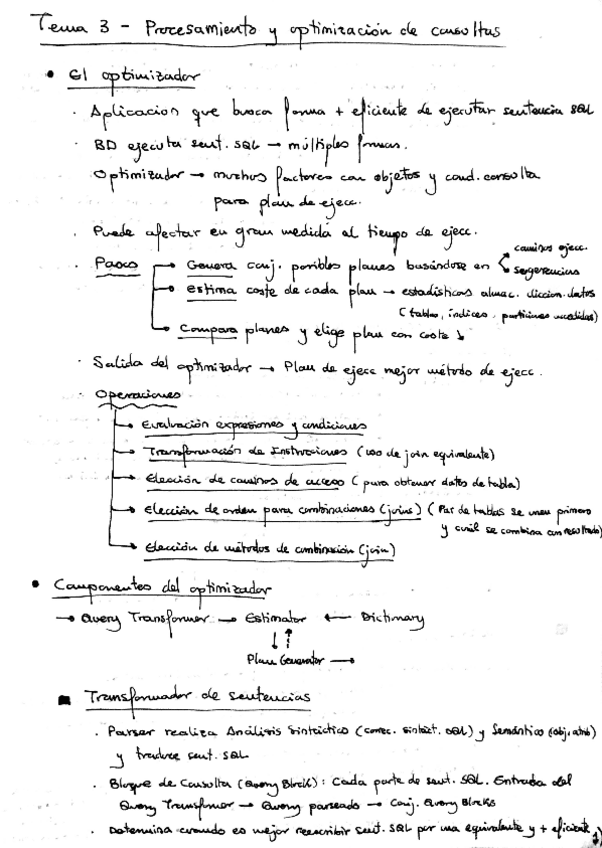 Tema 3 - Procesamiento y optimización de consultas
• El optimizador
· Aplicación que busca forma + eficiente de ejecutar sentencia SQL
· BD ejecuta sent. SQL → múltiples formas.
Optimizador → muchos factores con objetos y cond. consulta
para plan de ejecc.
· Puede afectar en gran medida al tiempo de ejecc.
· Pasos → Genera conj. posibles planes basándose en caminos ejecc.
sugerencias
→ estima coste de cada plan → estadísticas almac. diccion. datos
(tablas, índices, particiones accedidas)
→ Compara planes y elige plan con coste ↓
· Salida del optimizador → Plan de ejecc mejor método de ejecc.
· Operaciones
→ Evaluación expresiones y condiciones
→ Transformación de Instrucciones (uso de join equivalente)
→ Elección de caminos de acceso (para obtener datos de tabla)
→ Elección de orden para combinaciones (joins) (Par de tablas se unen primero
y cuál se combina con resultado)
→ Elección de métodos de combinación (join)
• Componentes del optimizador
→ Query Transformer → Estimator ← Dictionary
↓ ↑
Plan Generator →
■ Transformador de sentencias
· Parser realiza Análisis Sintáctico (correc. sintáct. SQL) y Semántico (obj, atrib)
y traduce sent. SQL
· Bloque de Consulta (Query Block): Cada parte de sent. SQL. Entrada del
Query Transformer → Query parseado → Conj. Query Blocks
· Determina cuando es mejor reescribir sent. SQL por una equivalente y + eficiente